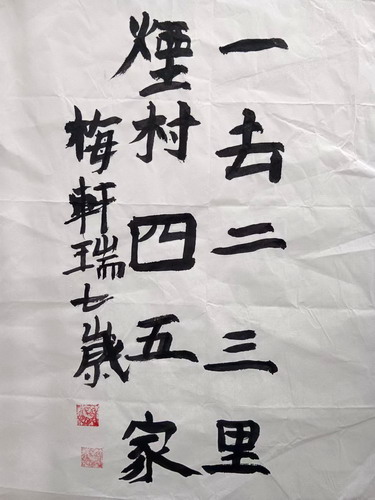 一去二三里
煙村四五家
梅軒瑞七歲